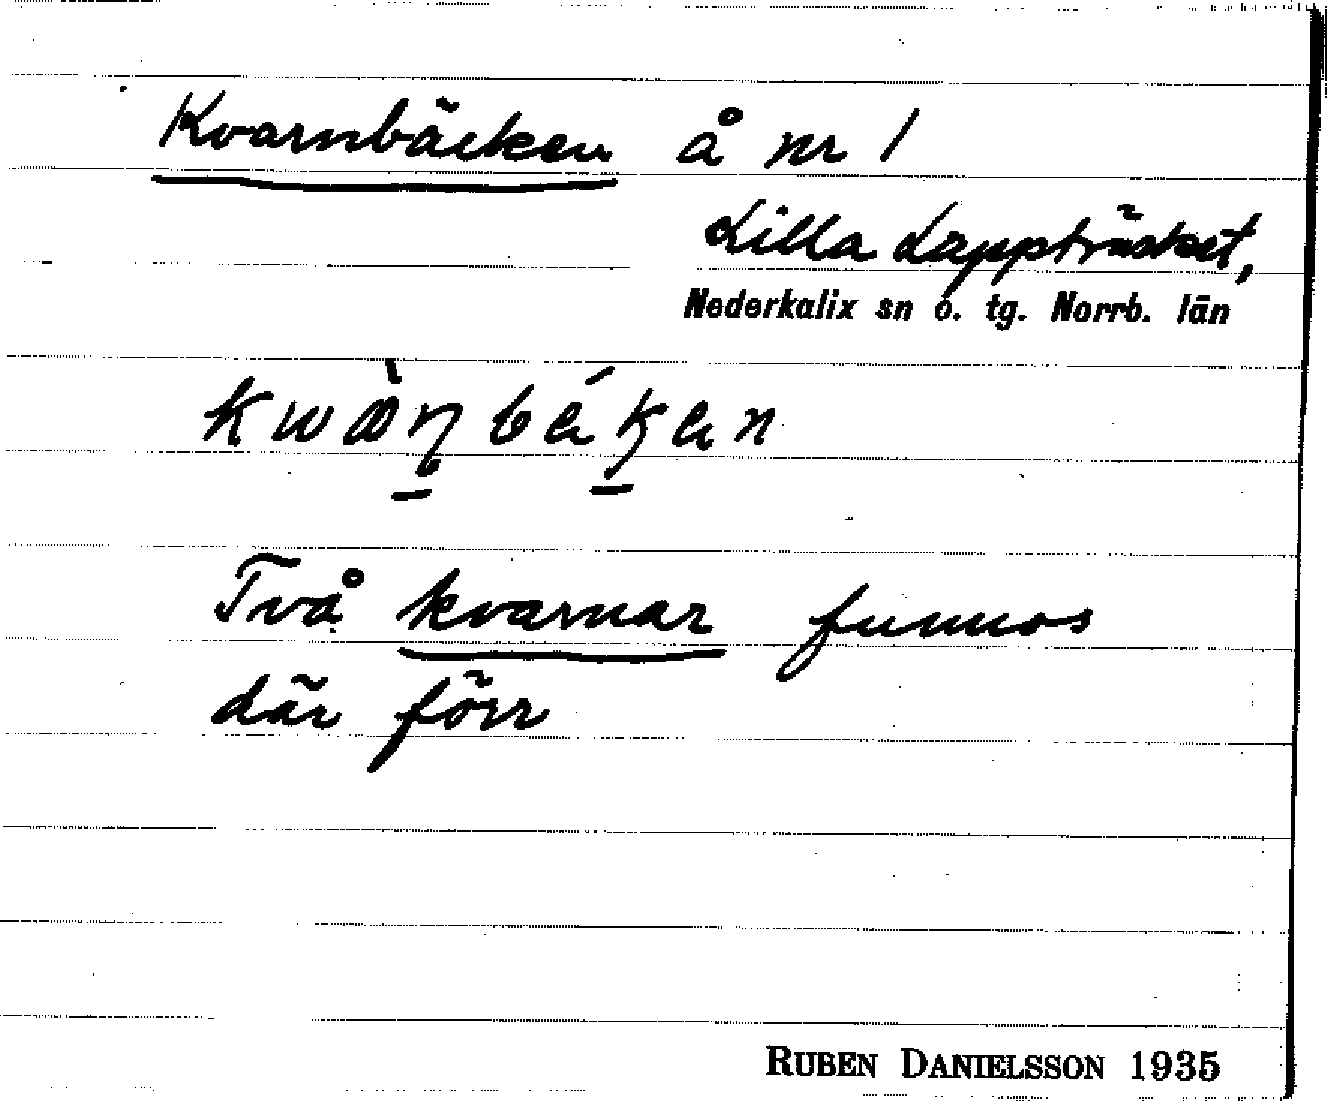 Kvarnbäcken å nr 1
Lilla Lappträsket,
Nederkalix sn o. tg. Norrb. län
Två kvarnar funnos
där förr
RUBEN DANIELSSON 1935